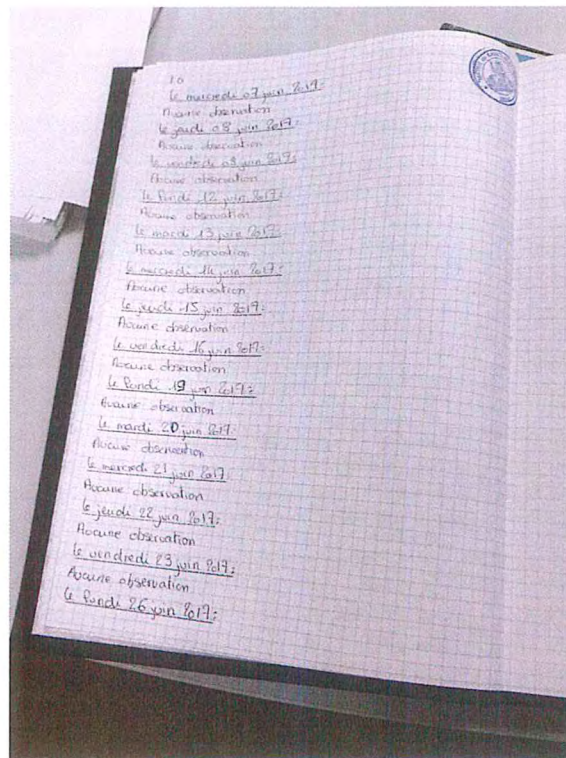 10
le mercredi 07 juin 2017:
Aucune observation
le jeudi 08 juin 2017:
Aucune observation
le vendredi 09 juin 2017:
Aucune observation
le lundi 12 juin 2017:
Aucune observation
le mardi 13 juin 2017:
Aucune observation
le mercredi 14 juin 2017:
Aucune observation
le jeudi 15 juin 2017:
Aucune observation
le vendredi 16 juin 2017:
Aucune observation
le lundi 19 juin 2017:
Aucune observation
le mardi 20 juin 2017:
Aucune observation
le mercredi 21 juin 2017:
Aucune observation
le jeudi 22 juin 2017:
Aucune observation
le vendredi 23 juin 2017:
Aucune observation
le lundi 26 juin 2017: